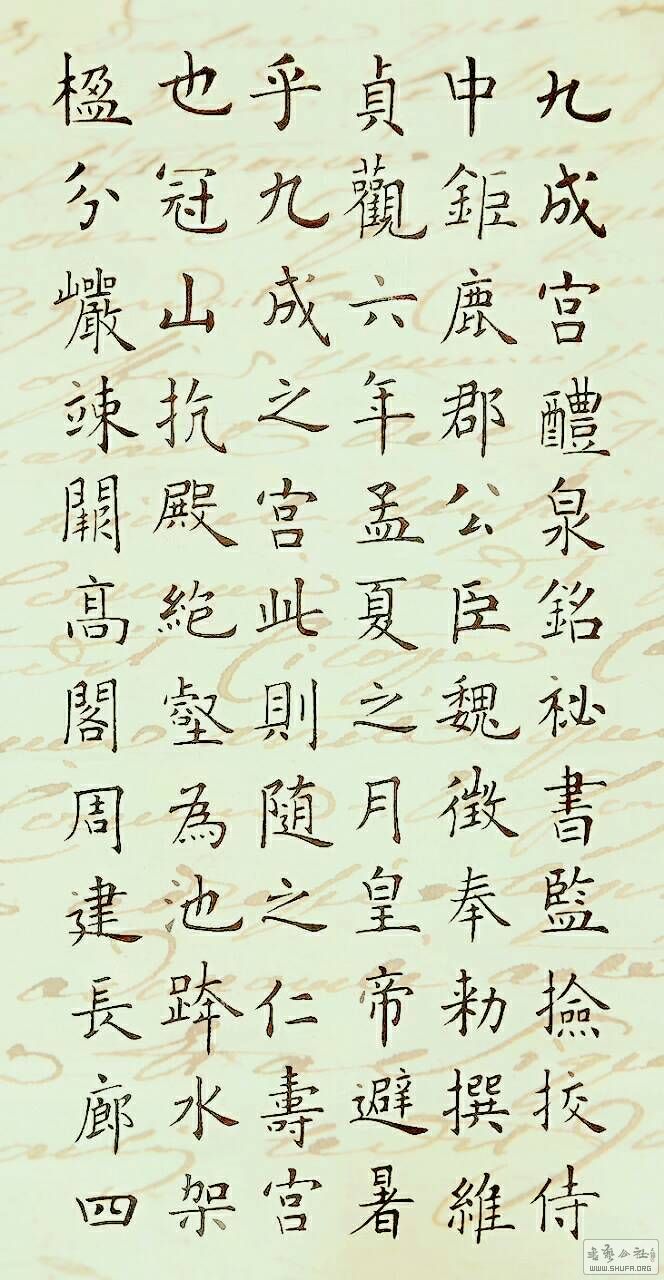 九成宫醴泉銘祕書監撿挍侍
中鉅鹿郡公臣魏徵奉勑撰維
貞觀六年孟夏之月皇帝避暑
乎九成之宫此則随之仁壽宫
也冠山抗殿絶壑為池跨水架
楹分巖竦闕高閣周建長廊四
WWW.SHUFA.ORG